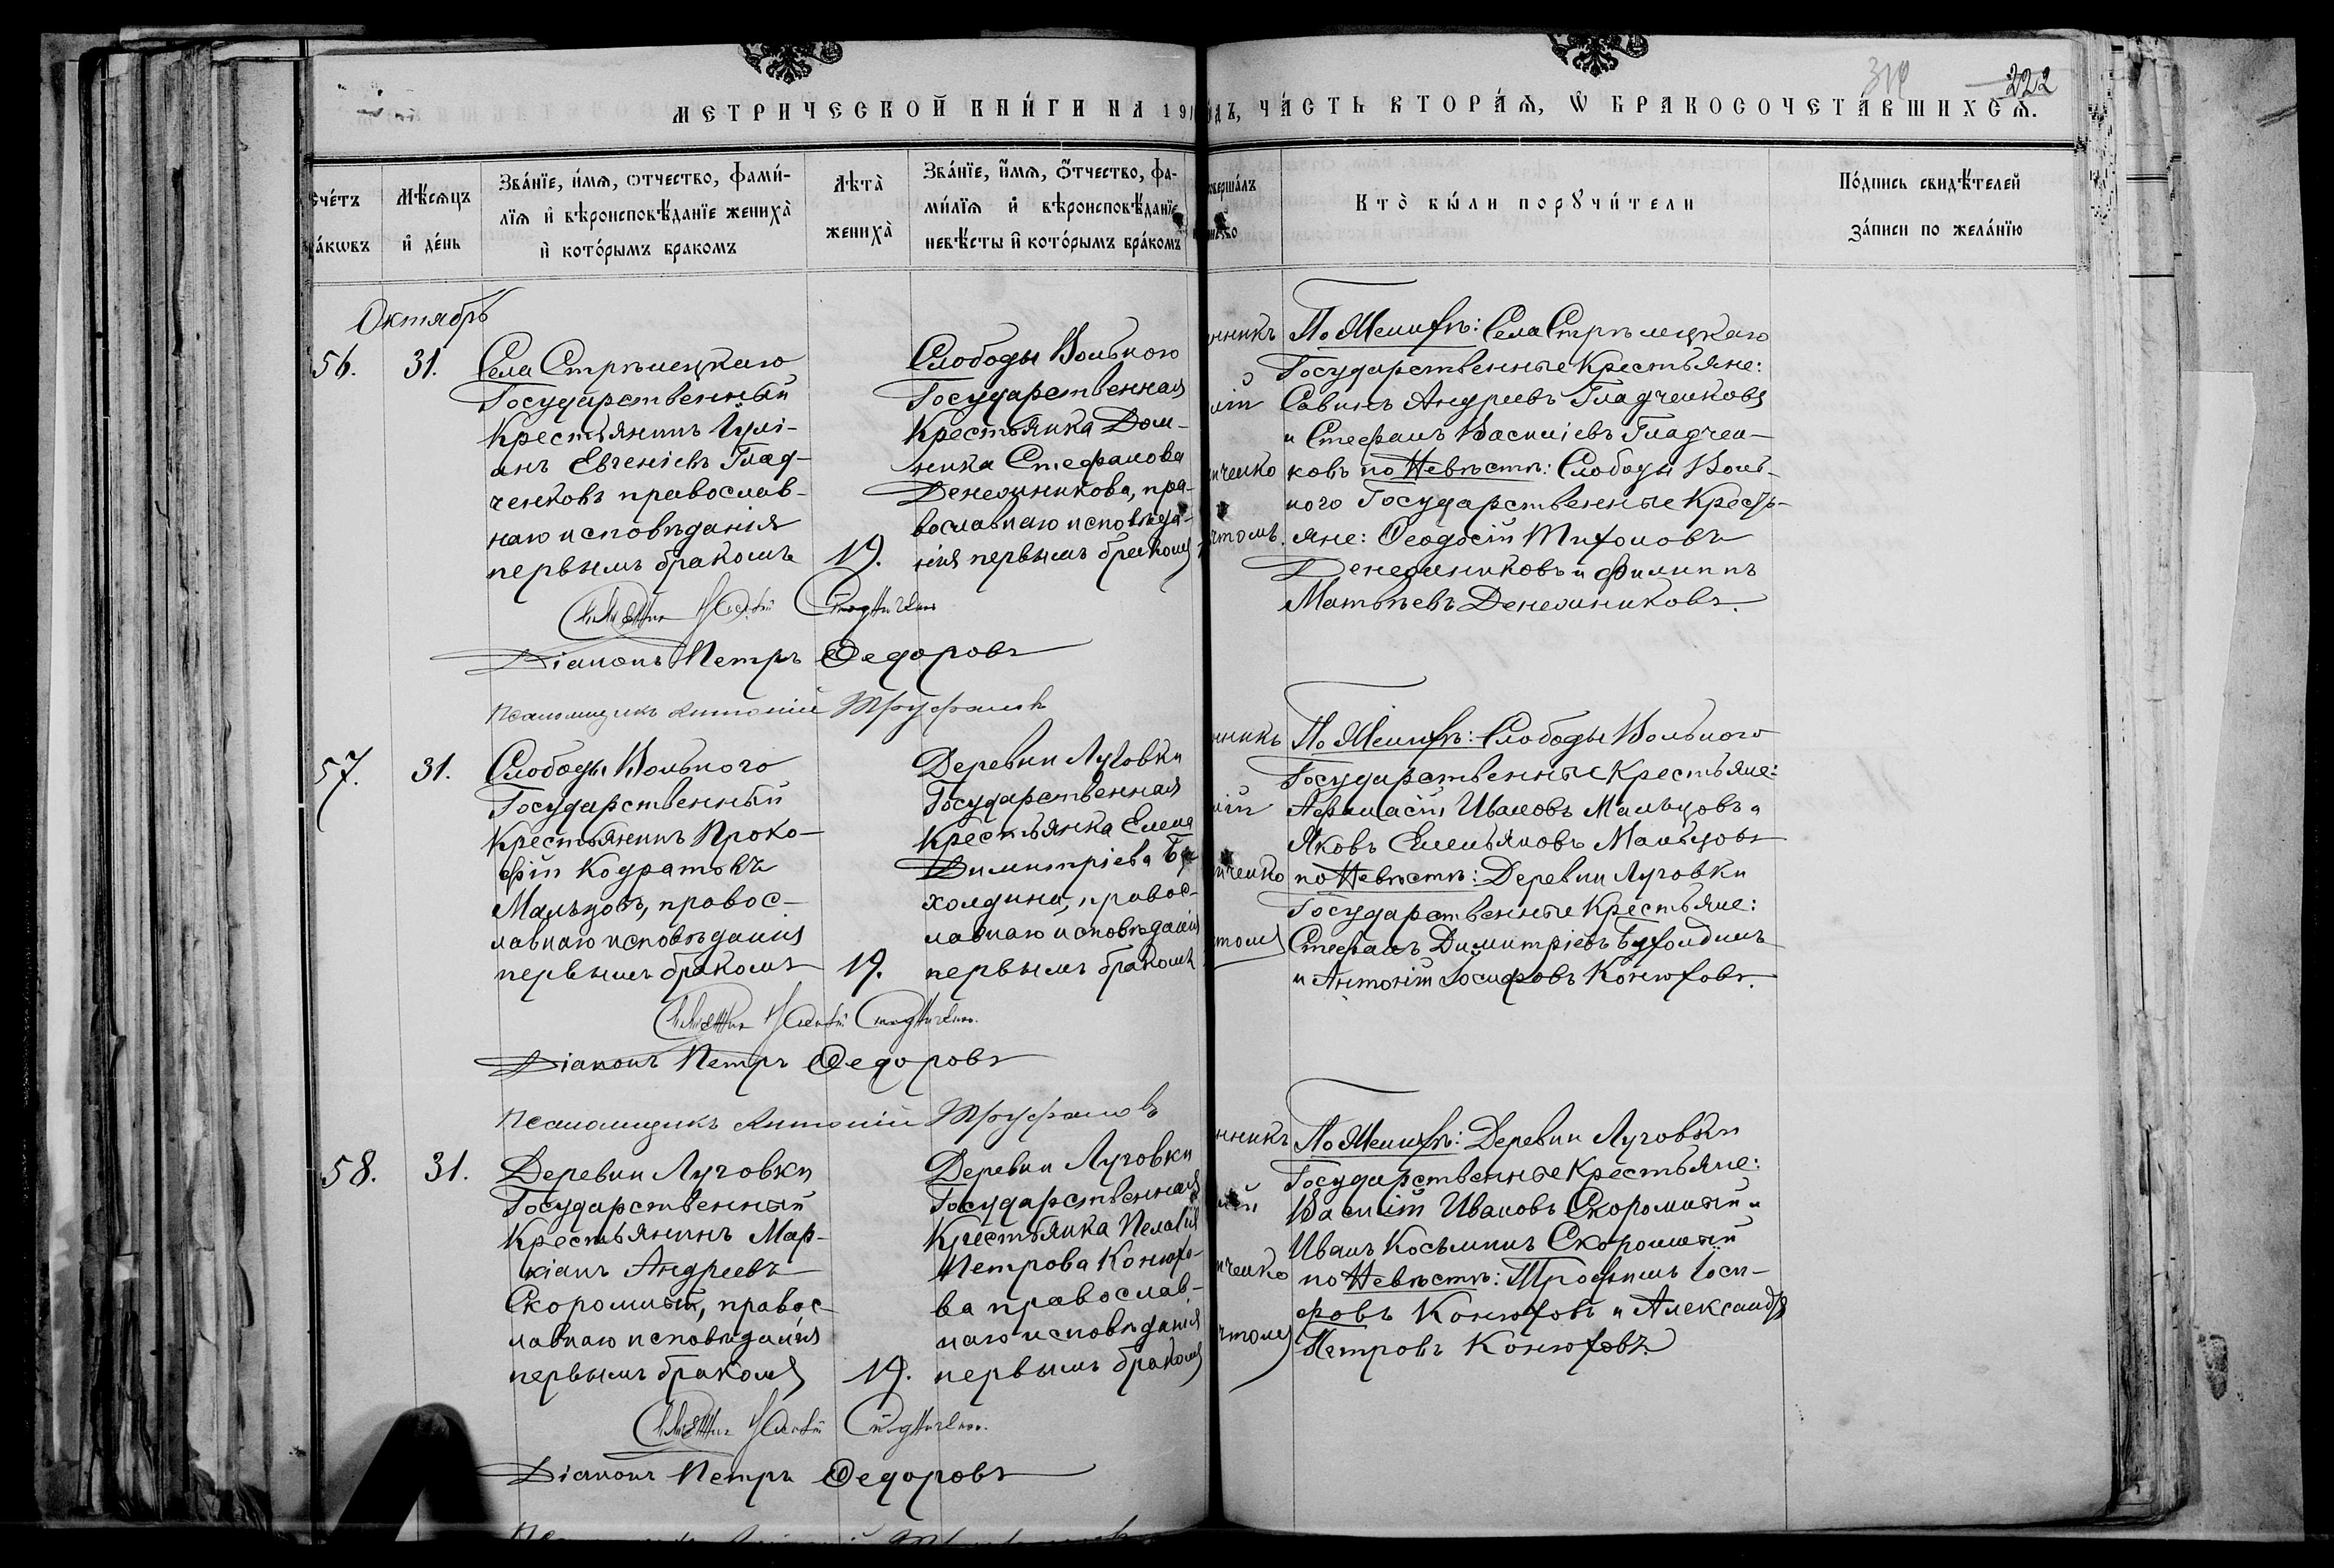 МЕТРИЧЕСКОЙ КНИ́ГИ НА 191
ДЪ, ЧА́СТЬ ВТОРА́Ѧ, Ѡ҆ БРАКОСОЧЕТА́ВШИХСѦ.
222
Сче́тъ
ра́кѡвъ
Мѣ́сѧцъ
и҆ де́нь
Зва́нїе, и҆́мѧ, ѻтчество, фами́-
лїѧ и҆ вѣроисповѣ́данїе жениха̀
и҆ кото́рымъ бракомъ
Лѣта̀
жениха̀
Зва́нїе, и҆́мѧ, ѻ҆́тчество, фа-
ми́лїѧ и҆ вѣроисповѣ́данїе
невѣ́сты и҆ кото́рымъ бра́комъ
овершалъ
Кто̀ бы́ли порꙋчи́тели
По́дпись свидѣ́телей
за́писи по жела́нїю
Октябрь
56.
31.
Села Стрѣлецкаго
Государственный
Крестьянинъ Іулі-
анъ Евгеніевъ Глад-
ченковъ православ-
наго исповѣданія
первымъ бракомъ
19.
Слободы Вольного
Государственная
Крестьянка Дом-
ника Стефанова
Денежникова, пра-
вославнаго исповѣда-
нія первымъ бракомъ
нникъ
ній
ченко
томъ.
По Женихѣ: Села Стрѣлецкаго
Государственные Крестьяне:
Савинъ Андреевъ Гладченковъ
и Стефанъ Василіевъ Гладчен-
ковъ по Невѣстѣ: Слободы Воль-
ного Государственные Кресть-
яне: Ѳеодосій Тихоновъ
Денежниковъ и Филиппъ
Матѳѣевъ Денежниковъ.
Діаконъ Петръ Ѳедоровъ
Псаломщикъ Антоній Труфановъ
57.
31.
Слободы Вольного
Государственный
Крестьянинъ Проко-
фій Кодратовъ
Мальцовъ, правос-
лавнаго исповѣданія
первымъ бракомъ
19.
Деревни Луговки
Государственная
Крестьянка Елена
Димитріева Бу-
холдина, правос-
лавнаго исповѣданія
первымъ бракомъ
нникъ
ній
ченко
томъ
По Женихѣ: Слободы Вольного
Государственные Крестьяне:
Аѳанасій Ивановъ Мальцовъ и
Яковъ Емельяновъ Мальцовъ
по Невѣстѣ: Деревни Луговки
Государственные Крестьяне:
Стефанъ Димитріевъ Бухолдинъ
и Антоній Іосифовъ Конюховъ.
Діаконъ Петръ Ѳедоровъ
Псаломщикъ Антоній Труфановъ
58.
31.
Деревни Луговки
Государственный
Крестьянинъ Мар-
кіанъ Андреевъ
Скоромный, правос-
лавнаго исповѣданія
первымъ бракомъ
19.
Деревни Луговки
Государственная
Крестьянка Пелагія
Петрова Конюхо-
ва православ-
наго исповѣданія
первымъ бракомъ
нникъ
ній
ченко
томъ
По Женихѣ: Деревни Луговки
Государственные Крестьяне:
Василій Ивановъ Скоромный и
Иванъ Косьминъ Скоромный
по Невѣстѣ: Трофимъ Іоси-
фовъ Конюховъ и Александръ
Петровъ Конюховъ.
Діаконъ Петръ Ѳедоровъ